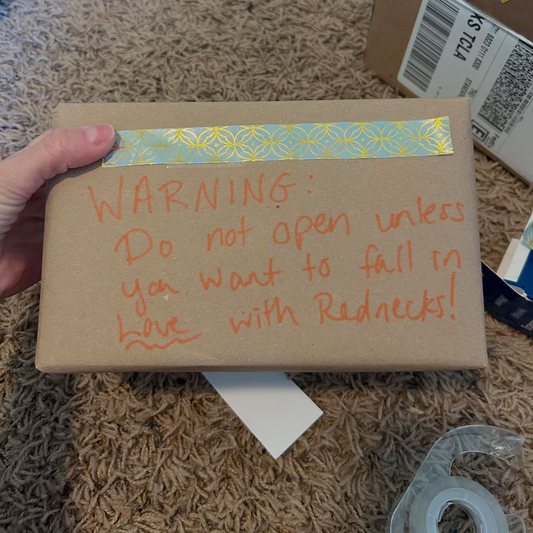 WARNING:
Do not open unless
you want to fall in
Love with Rednecks!
KS TCLA